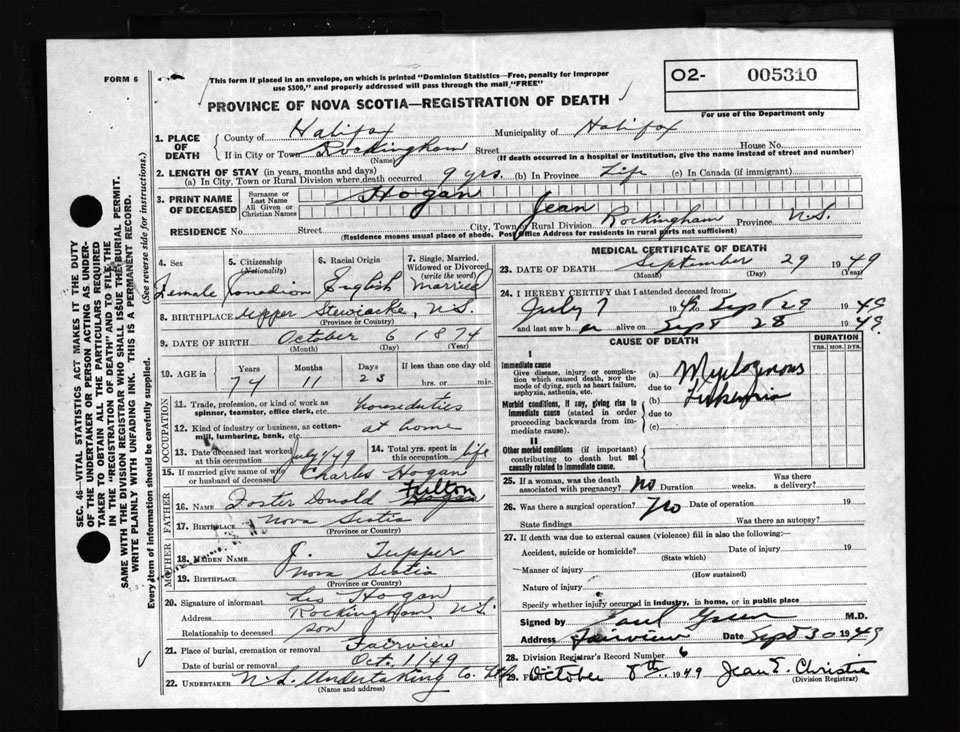 FORM 6
This form if placed in an envelope, on which is printed "Dominion Statistics—Free, penalty for improper
use $300," and properly addressed will pass through the mail "FREE"
PROVINCE OF NOVA SCOTIA—REGISTRATION OF DEATH
O2- 005310
For use of the Department only
1. PLACE OF DEATH
County of Halifax Municipality of Halifax
If in City or Town Rockingham Street House No.
(Name) (If death occurred in a hospital or institution, give the name instead of street and number)
2. LENGTH OF STAY (in years, months and days)
(a) In City, Town or Rural Division where death occurred 9 yrs. (b) In Province Life (c) In Canada (if immigrant)
3. PRINT NAME OF DECEASED
Surname or Last Name Hogan
All Given or Christian Names Jean
RESIDENCE No. Street City, Town or Rural Division Rockingham Province N.S.
(Residence means usual place of abode. Post Office Address for residents in rural parts not sufficient)
4. Sex 5. Citizenship (Nationality) 6. Racial Origin 7. Single, Married, Widowed or Divorced (write the word)
Female Canadian English Married
8. BIRTHPLACE Upper Stewiacke, N.S.
(Province or Country)
9. DATE OF BIRTH October 6 1874
(Month) (Day) (Year)
10. AGE in Years Months Days If less than one day old
74 11 23 hrs. or min.
OCCUPATION
11. Trade, profession, or kind of work as
spinner, teamster, office clerk, etc. houseduties
12. Kind of industry or business, as cotton-
mill, lumbering, bank, etc. at home
13. Date deceased last worked at this occupation July/49 14. Total yrs. spent in this occupation life
15. If married give name of wife or husband of deceased Charles Hogan
FATHER
16. NAME Foster Donald Fulton
17. BIRTHPLACE Nova Scotia
(Province or Country)
MOTHER
18. MAIDEN NAME J. Tupper
19. BIRTHPLACE Nova Scotia
(Province or Country)
20. Signature of informant Les Hogan
Address Rockingham, N.S.
Relationship to deceased son
21. Place of burial, cremation or removal Fairview
Date of burial or removal Oct. 1/49
22. UNDERTAKER N.S. Undertaking Co. Ltd.
(Name and address)
MEDICAL CERTIFICATE OF DEATH
23. DATE OF DEATH September 29 1949
(Month) (Day) (Year)
24. I HEREBY CERTIFY that I attended deceased from:
July 7 1949 to Sept 29 1949
and last saw her alive on Sept 28 1949.
CAUSE OF DEATH DURATION
YRS. MOS. DYS.
I
Immediate cause
Give disease, injury or complica-
tion which caused death, NOT the
mode of dying, such as heart failure,
asphyxia, asthenia, etc.
(a) Myelogenous
due to Leukemia
Morbid conditions, if any, giving rise to
immediate cause (stated in order
proceeding backwards from im-
mediate cause).
(b)
due to
(c)
II
Other morbid conditions (if important)
contributing to death but not
causally related to immediate cause.
25. If a woman, was the death associated with pregnancy? no Duration weeks. Was there a delivery?
26. Was there a surgical operation? No Date of operation 19
State findings Was there an autopsy?
27. If death was due to external causes (violence) fill in also the following:
Accident, suicide or homicide? Date of injury 19
(State which)
Manner of injury
(How sustained)
Nature of injury
Specify whether injury occurred in industry, in home, or in public place
Signed by M.D.
Address Fairview Date Sept 30 1949
28. Division Registrar's Record Number 6
29. October 8th 1949 Jean E. Christie
(Division Registrar)
SEC. 46—VITAL STATISTICS ACT MAKES IT THE DUTY
OF THE UNDERTAKER OR PERSON ACTING AS UNDER-
TAKER TO OBTAIN ALL THE PARTICULARS REQUIRED
IN THE "REGISTRATION OF DEATH" AND TO FILE THE
SAME WITH THE DIVISION REGISTRAR WHO SHALL ISSUE THE BURIAL PERMIT.
WRITE PLAINLY WITH UNFADING INK. THIS IS A PERMANENT RECORD.
Every item of information should be carefully supplied. (See reverse side for instructions.)